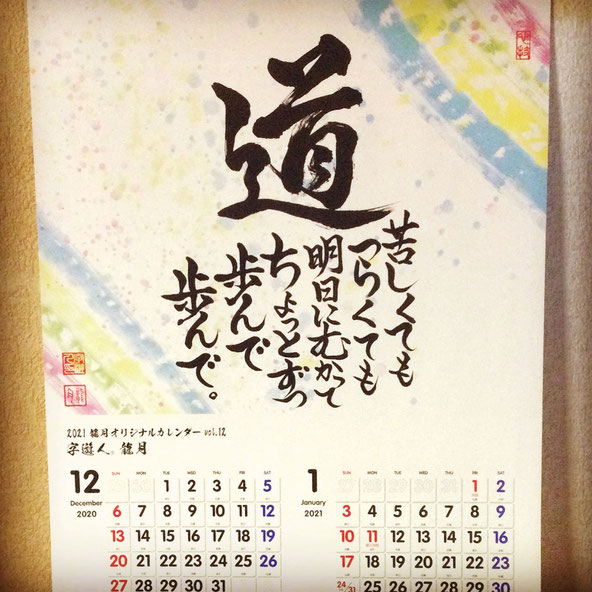 道
苦しくても
つらくても
明日にむかって
ちょっとずつ
歩んで
歩んで。
2021 龍月オリジナルカレンダー vol.12
字遊人。龍月
12
December
2020
SUN MON TUE WED THU FRI SAT
1 2 3 4 5
6 7 8 9 10 11 12
13 14 15 16 17 18 19
20 21 22 23 24 25 26
27 28 29 30 31
1
January
2021
SUN MON TUE WED THU FRI SAT
27 28 29 30 31 1 2
3 4 5 6 7 8 9
10 11 12 13 14 15 16
17 18 19 20 21 22 23
24/31 25 26 27 28 29 30